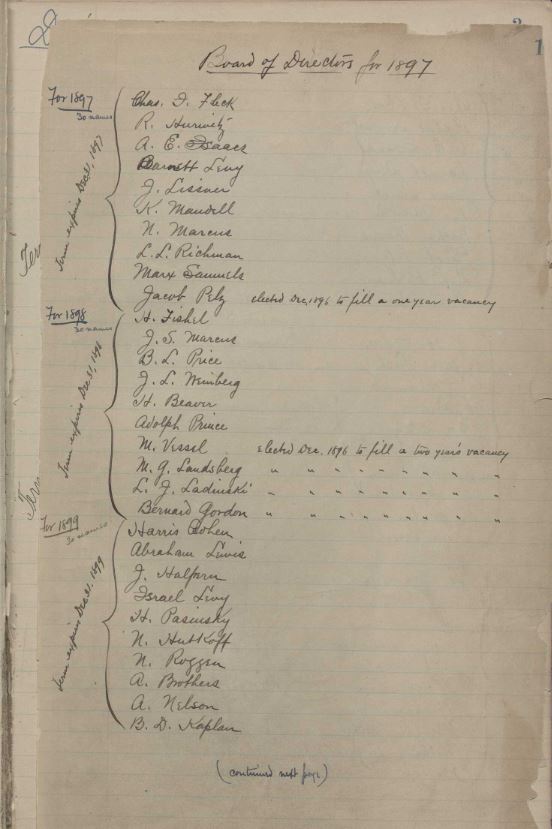 Board of Directors for 1897
For 1897
30 names
Term expires Dec 31, 1897
Chas. I. Fleck
R. Hurwitz
A. E. Isaacs
Barnett Levy
J. Lissner
K. Mandell
N. Marcus
L. L. Richman
Marx Samuels
Jacob Pelz elected Dec, 1896 to fill a one year vacancy
For 1898
30 names
Term expires Dec 31, 1898
H. Fishel
J. S. Marcus
B. L. Price
J. L. Weinberg
H. Beaver
Adolph Prince
M. Vessel elected Dec. 1896 to fill a two years vacancy
M. G. Landsberg " " " " " " " " "
L. J. Ladinski " " " " " " " " "
Bernard Gordon " " " " " " " " "
For 1899
30 names
Term expires Dec 31, 1899
Harris Cohen
Abraham Lewis
J. Halpern
Israel Levy
H. Pasinsky
N. Hutkoff
N. Roggen
A. Brothers
A. Nelson
B. D. Kaplan
(continued next page)